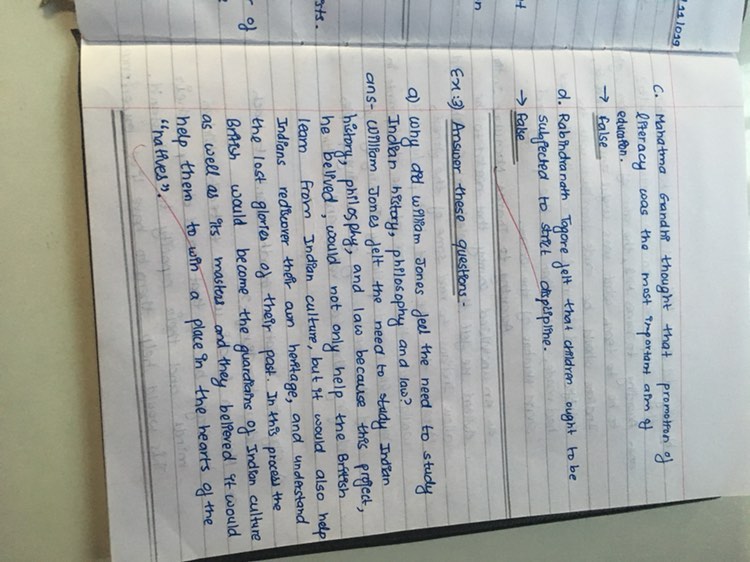 11/019
C. Mahatma Gandhi thought that promotion of
literacy was the most important aim of
education.
→ false
d. Rabindranath Tagore felt that children ought to be
subjected to strict displipline.
→ False
Ex:3) Answer these questions:-
a) Why did William Jones feel the need to study
Indian history, philosophy and law?
ans- William Jones felt the need to study Indian
history, philosphy, and law because this project,
he belived, would not only help the British
learn from Indian culture, but it would also help
Indians rediscover their own heritage, and understand
the lost glories of their past. In this process the
British would become the guardians of Indian culture
as well as its masters and they believed it would
help them to win a place in the hearts of the
"natives".
sts.
r of